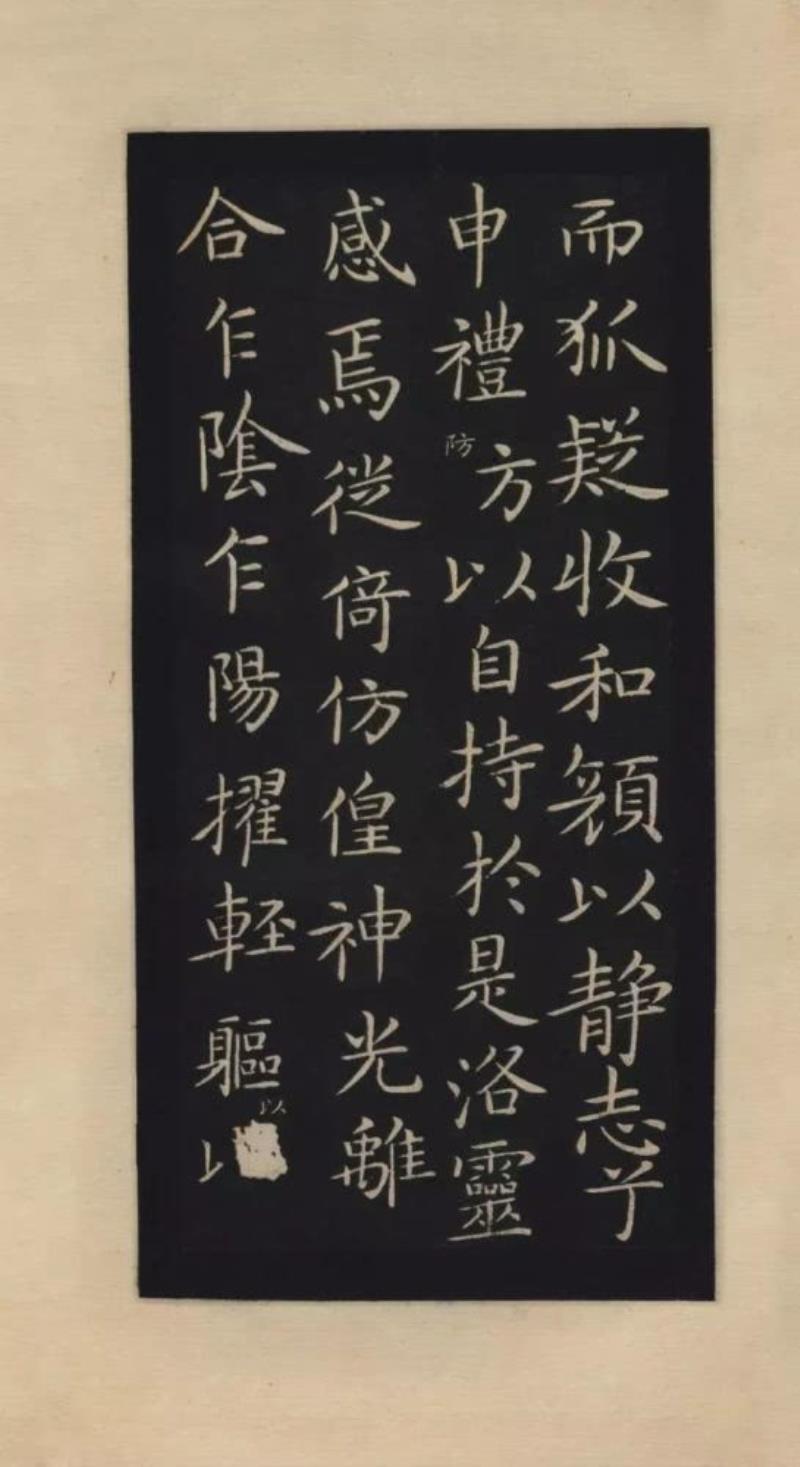 而狐疑收和顔以静志兮
申禮防方以自持於是洛靈
感焉徙倚仿偟神光離
合乍陰乍陽擢輕軀以